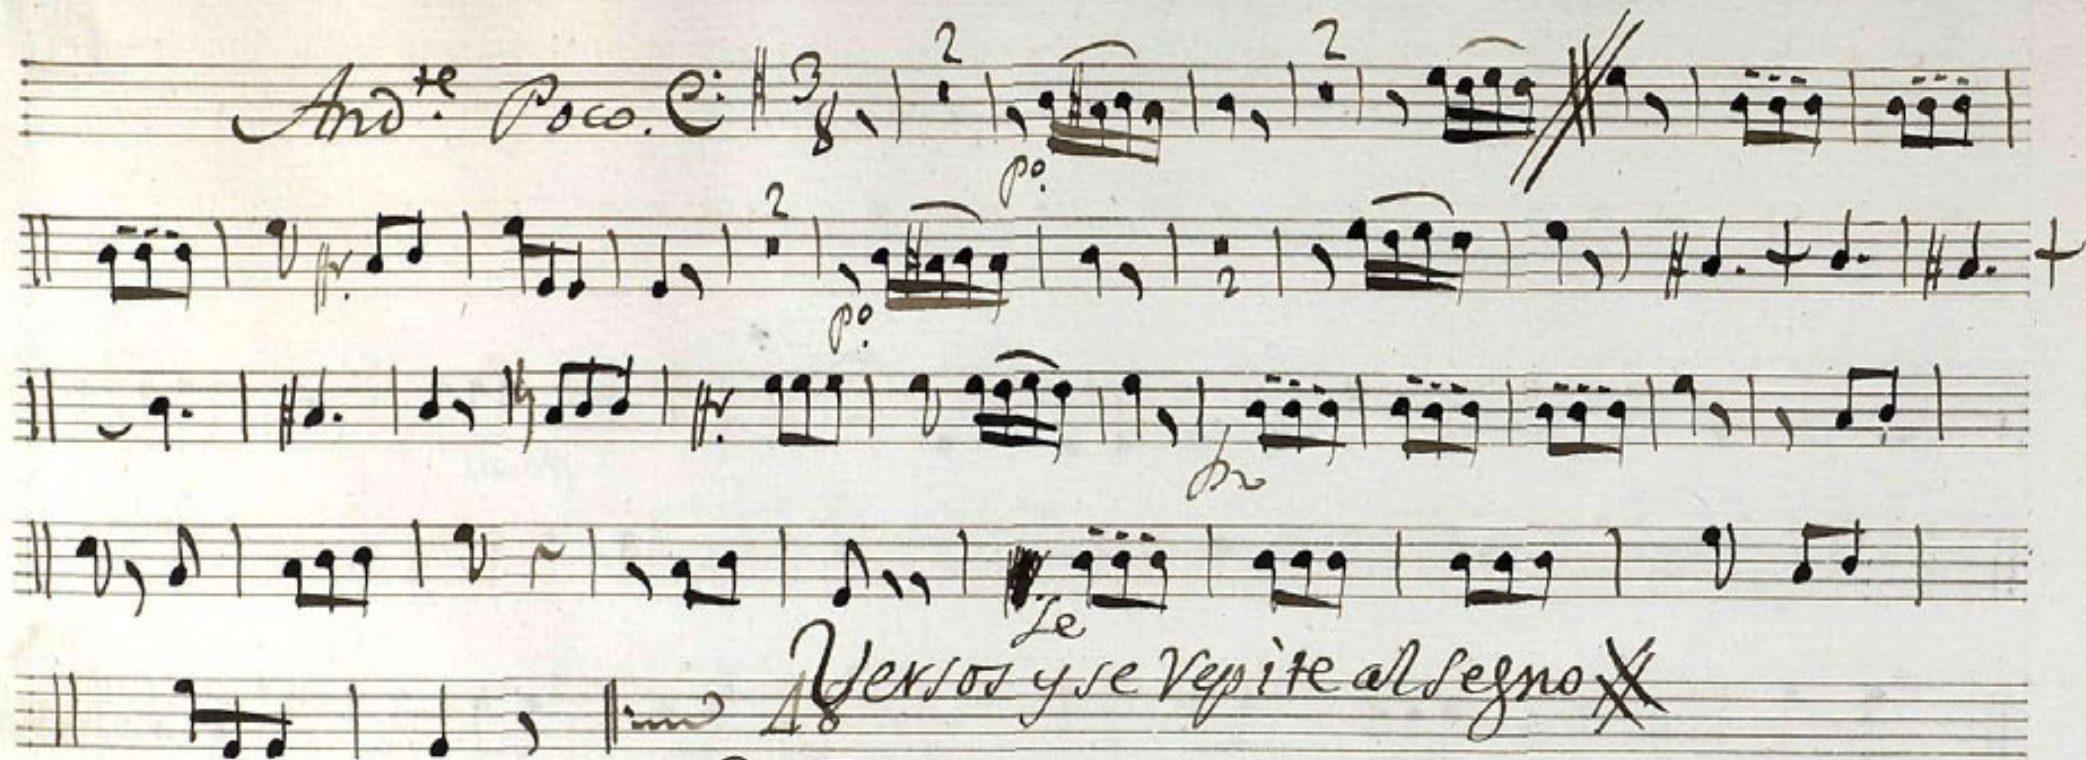 And.te Poco. 3/8 2 2
po.
2
po. 2
fr
Le
48 Versos y se Repite al Segno